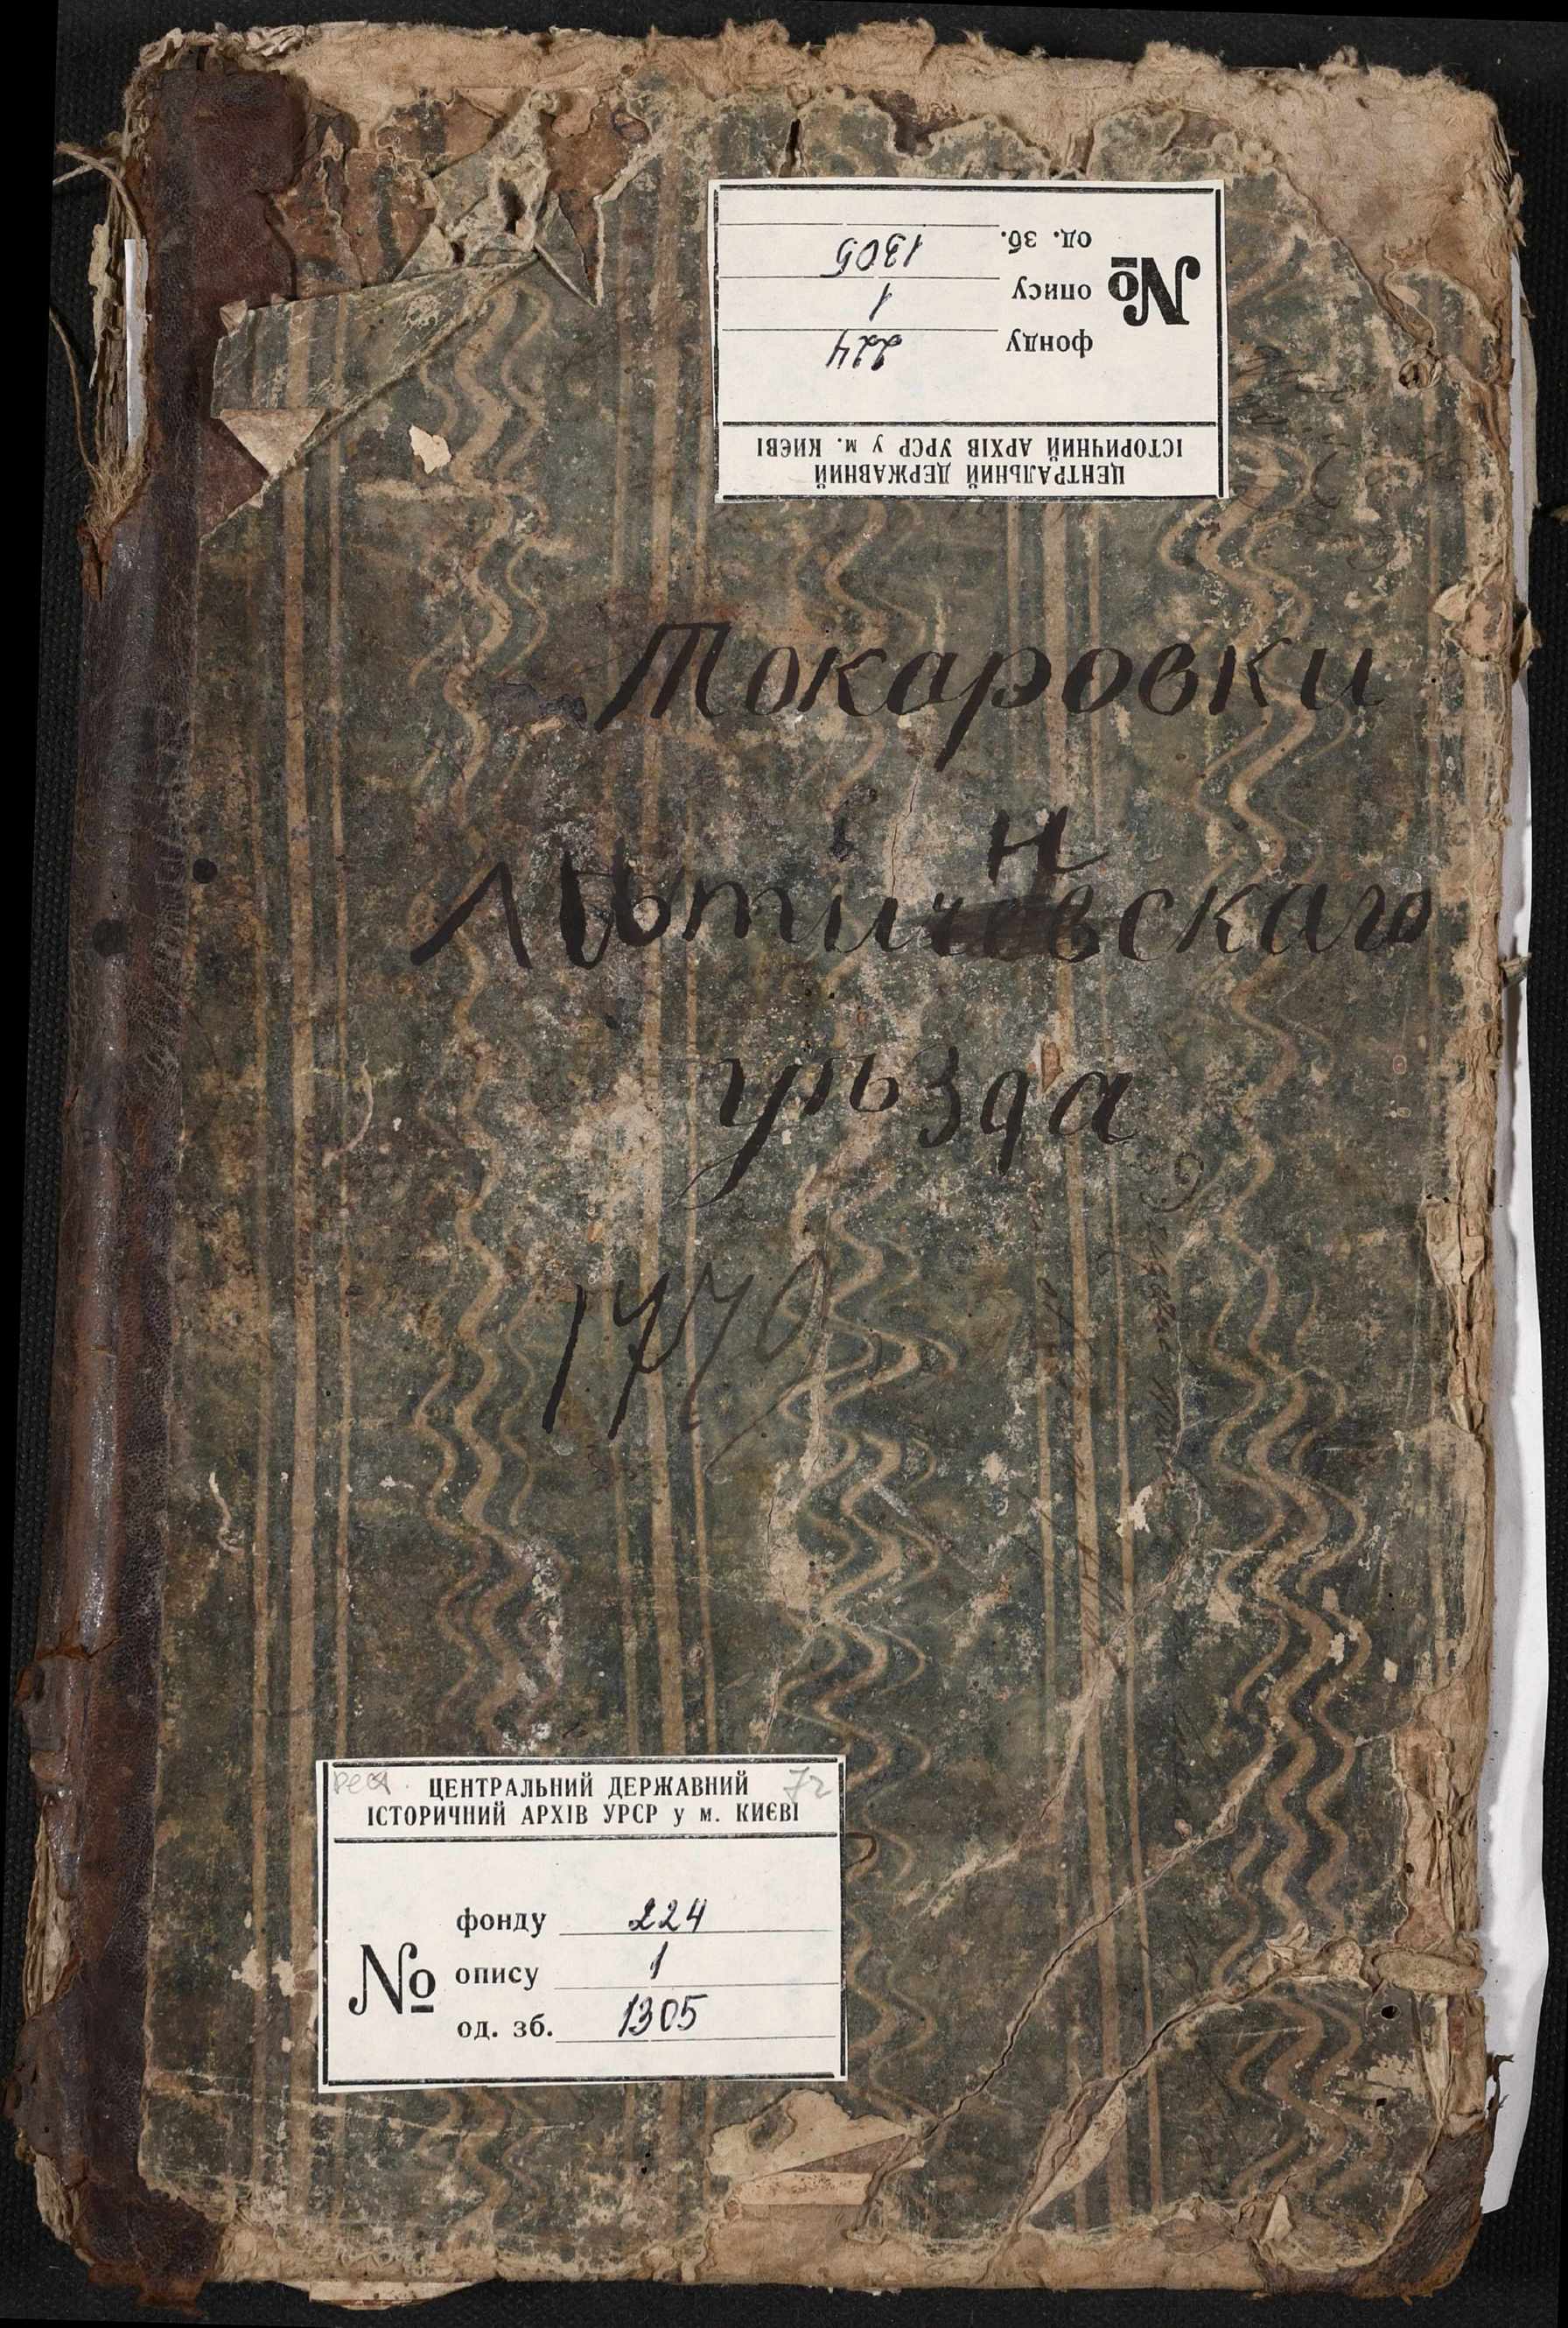 ЦЕНТРАЛЬНИЙ ДЕРЖАВНИЙ
ІСТОРИЧНИЙ АРХІВ УРСР у м. КИЄВІ
№
фонду 224
опису 1
од. зб. 1305
Токаровки
н
Лѣтичевскаго
уѣзда
1770
ЦЕНТРАЛЬНИЙ ДЕРЖАВНИЙ
ІСТОРИЧНИЙ АРХІВ УРСР у м. КИЄВІ
№
фонду 224
опису 1
од. зб. 1305